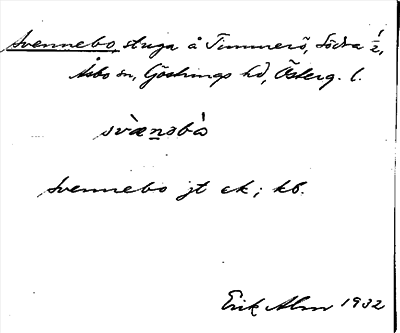 Svennebo, stuga å Timmerö, Södra 1/2,
Åsbo sn, Göstrings hd, Österg. l.
svæ̀nəbò
Svennebo jt ek; kb.
Erik Alm 1932